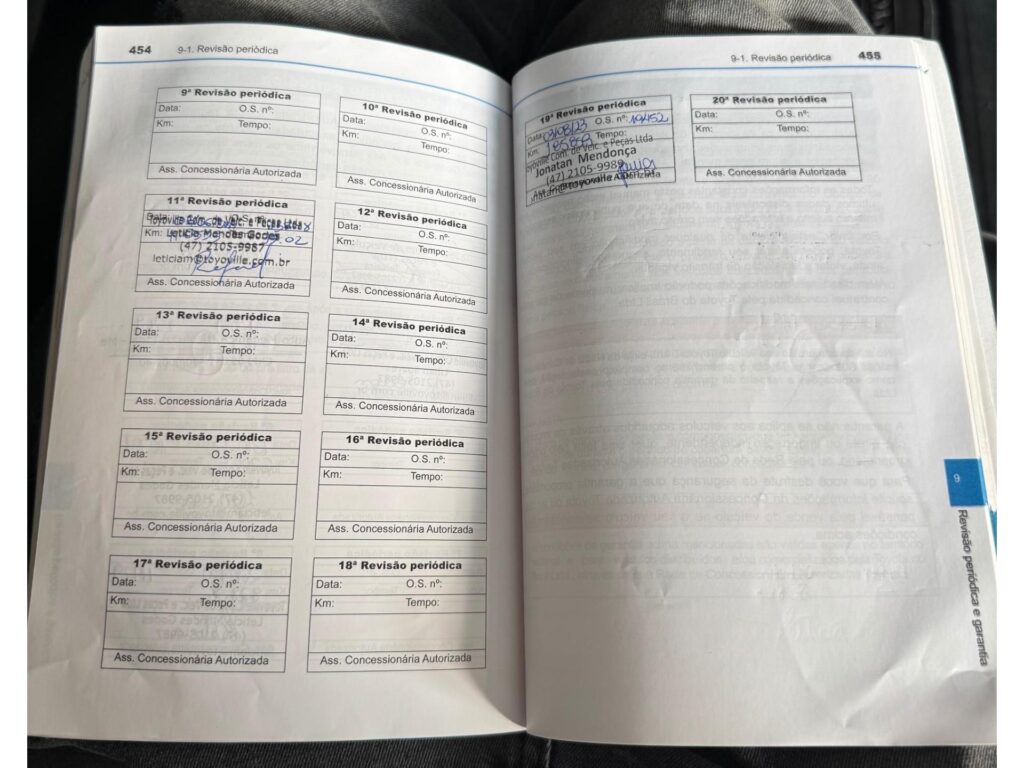 454 9-1. Revisão periódica
9ª Revisão periódica
Data: O.S. nº:
Km: Tempo:
Ass. Concessionária Autorizada
10ª Revisão periódica
Data: O.S. nº:
Km: Tempo:
Ass. Concessionária Autorizada
11ª Revisão periódica
Data: O.S. nº:
Toyoville Com. de Veic. e Peças Ltda
Km: Tempo:
Leticia Mendes Godes
(47) 2105-9987
leticiam@toyoville.com.br
Rafael
Ass. Concessionária Autorizada
12ª Revisão periódica
Data: O.S. nº:
Km: Tempo:
Ass. Concessionária Autorizada
13ª Revisão periódica
Data: O.S. nº:
Km: Tempo:
Ass. Concessionária Autorizada
14ª Revisão periódica
Data: O.S. nº:
Km: Tempo:
Ass. Concessionária Autorizada
15ª Revisão periódica
Data: O.S. nº:
Km: Tempo:
Ass. Concessionária Autorizada
16ª Revisão periódica
Data: O.S. nº:
Km: Tempo:
Ass. Concessionária Autorizada
17ª Revisão periódica
Data: O.S. nº:
Km: Tempo:
Ass. Concessionária Autorizada
18ª Revisão periódica
Data: O.S. nº:
Km: Tempo:
Ass. Concessionária Autorizada
9-1. Revisão periódica 455
19ª Revisão periódica
Data: 03/08/23 O.S. nº: 19452
Km: Tempo:
Toyoville Com. de Veic. e Peças Ltda
Jonatan Mendonça
(47) 2105-9989
Ass. Concessionária Autorizada
20ª Revisão periódica
Data: O.S. nº:
Km: Tempo:
Ass. Concessionária Autorizada
9
Revisão periódica e garantia